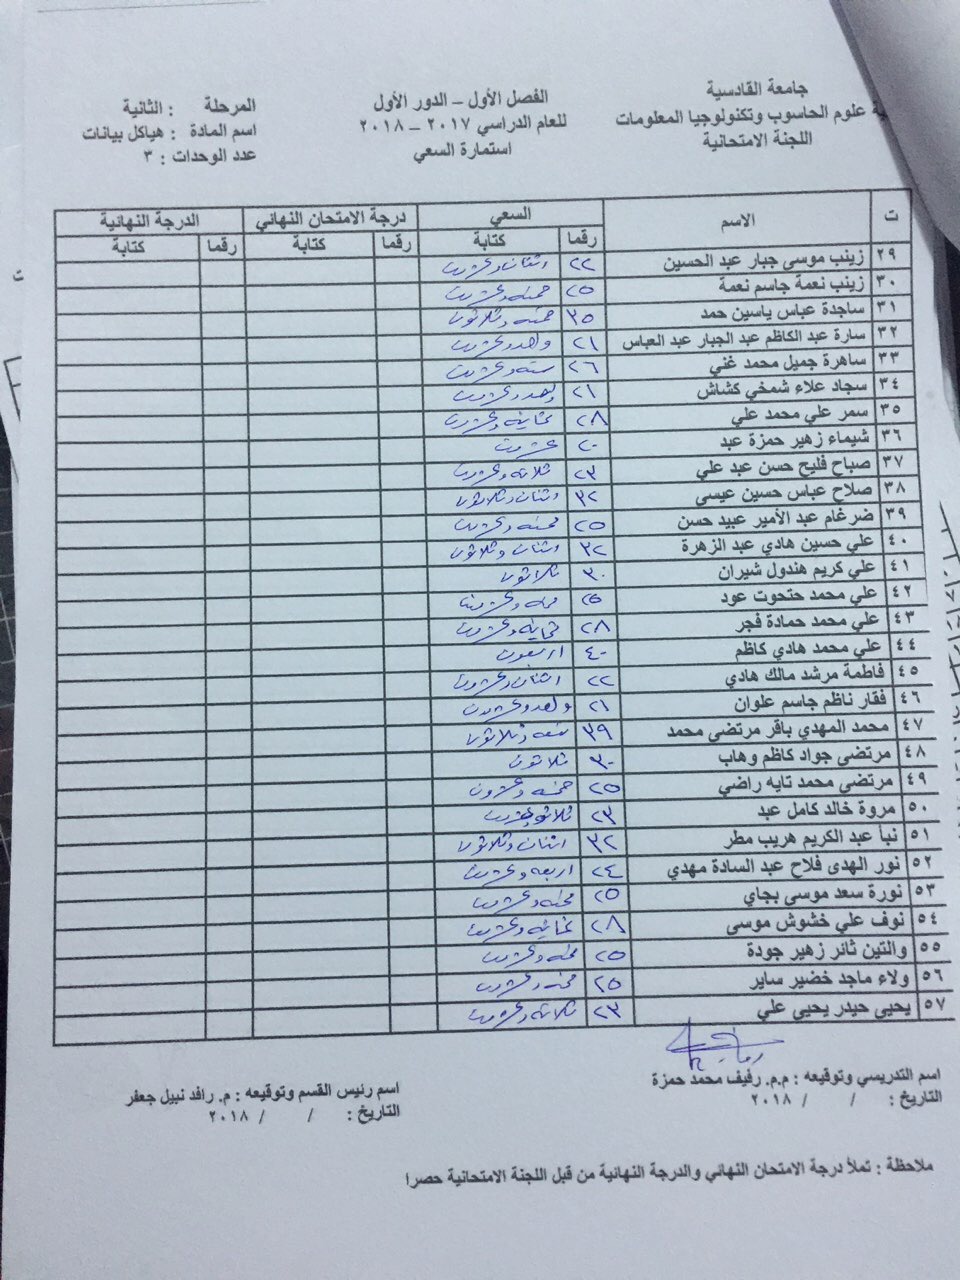 جامعة القادسية
ية علوم الحاسوب وتكنولوجيا المعلومات
اللجنة الامتحانية
الفصل الأول – الدور الأول
للعام الدراسي ٢٠١٧ – ٢٠١٨
استمارة السعي
المرحلة : الثانية
اسم المادة : هياكل بيانات
عدد الوحدات : ٣
ت الاسم السعي درجة الامتحان النهائي الدرجة النهائية
رقما كتابة رقما كتابة رقما كتابة
٢٩ زينب موسى جبار عبد الحسين ٢٢ اثنان وعشرون
٣٠ زينب نعمة جاسم نعمة ٢٥ خمسه وعشرون
٣١ ساجدة عباس ياسين حمد ٣٥ خمسه وثلاثون
٣٢ سارة عبد الكاظم عبد الجبار عبد العباس ٢١ واحد وعشرون
٣٣ ساهرة جميل محمد غني ٢٦ سته وعشرون
٣٤ سجاد علاء شمخي كشاش ٢١ واحد وعشرون
٣٥ سمر علي محمد علي ٢٨ ثمانيه وعشرون
٣٦ شيماء زهير حمزة عبد ٢٠ عشرون
٣٧ صباح فليح حسن عبد علي ٢٣ ثلاثه وعشرون
٣٨ صلاح عباس حسين عيسى ٣٢ اثنان وثلاثون
٣٩ ضرغام عبد الأمير عبيد حسن ٢٥ خمسه وعشرون
٤٠ علي حسين هادي عبد الزهرة ٣٢ اثنان وثلاثون
٤١ علي كريم هندول شيران ٣٠ ثلاثون
٤٢ علي محمد حتحوت عود ٢٥ خمسه وعشرون
٤٣ علي محمد حمادة فجر ٢٨ ثمانيه وعشرون
٤٤ علي محمد هادي كاظم ٤٠ اربعون
٤٥ فاطمة مرشد مالك هادي ٢٢ اثنان وعشرون
٤٦ فقار ناظم جاسم علوان ٢١ واحد وعشرون
٤٧ محمد المهدي باقر مرتضى محمد ٣٩ تسعه وثلاثون
٤٨ مرتضى جواد كاظم وهاب ٣٠ ثلاثون
٤٩ مرتضى محمد تايه راضي ٢٥ خمسه وعشرون
٥٠ مروة خالد كامل عبد ٢٣ ثلاثه وعشرون
٥١ نبأ عبد الكريم هريب مطر ٣٢ اثنان وثلاثون
٥٢ نور الهدى فلاح عبد السادة مهدي ٢٤ اربعه وعشرون
٥٣ نورة سعد موسى بجاي ٢٥ خمسه وعشرون
٥٤ نوف علي خشوش موسى ٢٨ ثمانيه وعشرون
٥٥ والتين ثائر زهير جودة ٢٥ خمسه وعشرون
٥٦ ولاء ماجد خضير ساير ٢٥ خمسه وعشرون
٥٧ يحيى حيدر يحيى علي ٢٣ ثلاثه وعشرون
اسم التدريسي وتوقيعه : م.م. رفيف محمد حمزة
التاريخ : / / ٢٠١٨
اسم رئيس القسم وتوقيعه : م. رافد نبيل جعفر
التاريخ : / / ٢٠١٨
ملاحظة : تملأ درجة الامتحان النهائي والدرجة النهائية من قبل اللجنة الامتحانية حصرا